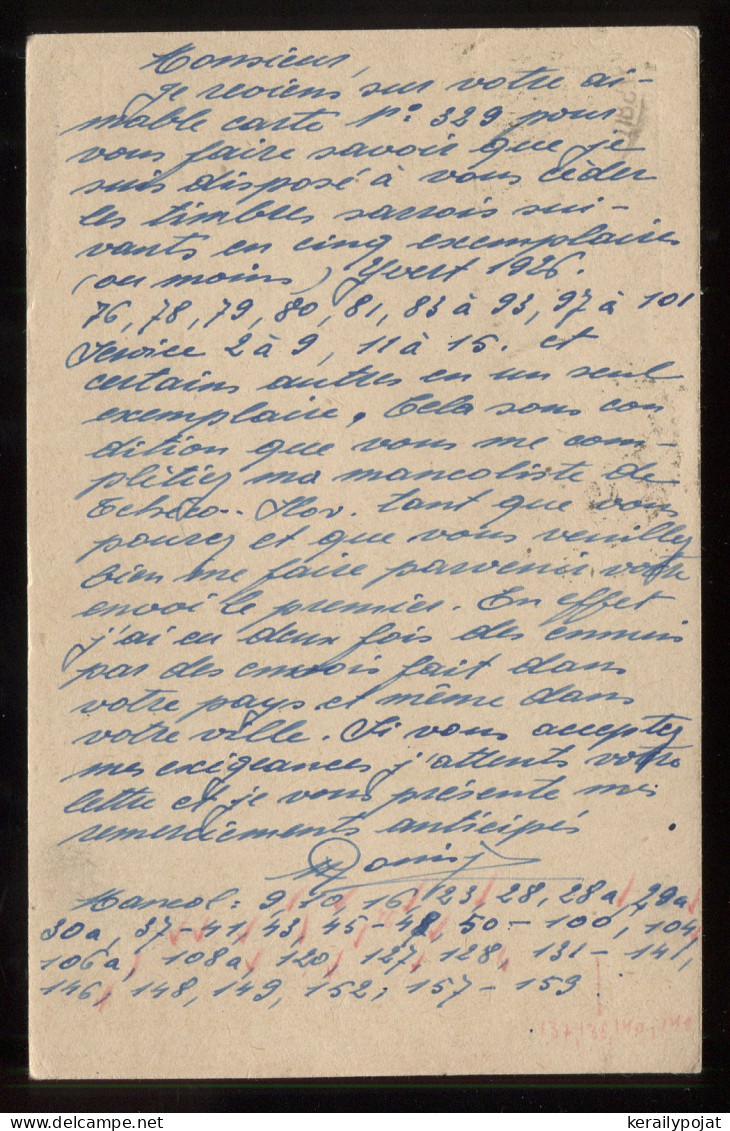 Monsieur,
Je reviens sur votre ai-
mable carte N° 329 pour
vous faire savoir que je
suis disposé à vous céder
les timbres sarrois sui-
vants en cinq exemplaires
(ou moins) Yvert 1926.
76, 78, 79, 80, 81, 83 à 93, 97 à 101
Service 2 à 9, 11 à 15. et
certains autres en un seul
exemplaire, Cela sous con
dition que vous me com-
plétiez ma mancoliste de
Tchéco-Slov. tant que vous
pourez et que vous veuillez
bien me faire parvenir votre
envoi le premier. En effet
j'ai eu deux fois des ennuis
par des envois fait dans
votre pays et même dans
votre ville. Si vous acceptez
mes exigeances j'attents votre
lettre et je vous présente mes
remerciements anticipés
Mancol: 9, 16, 23, 28, 28a, 29a
30a, 37-41, 43, 45-48, 50-100, 104,
106a, 108a, 120, 127, 128, 131-141,
146, 148, 149, 152, 157-159
kerailypojat